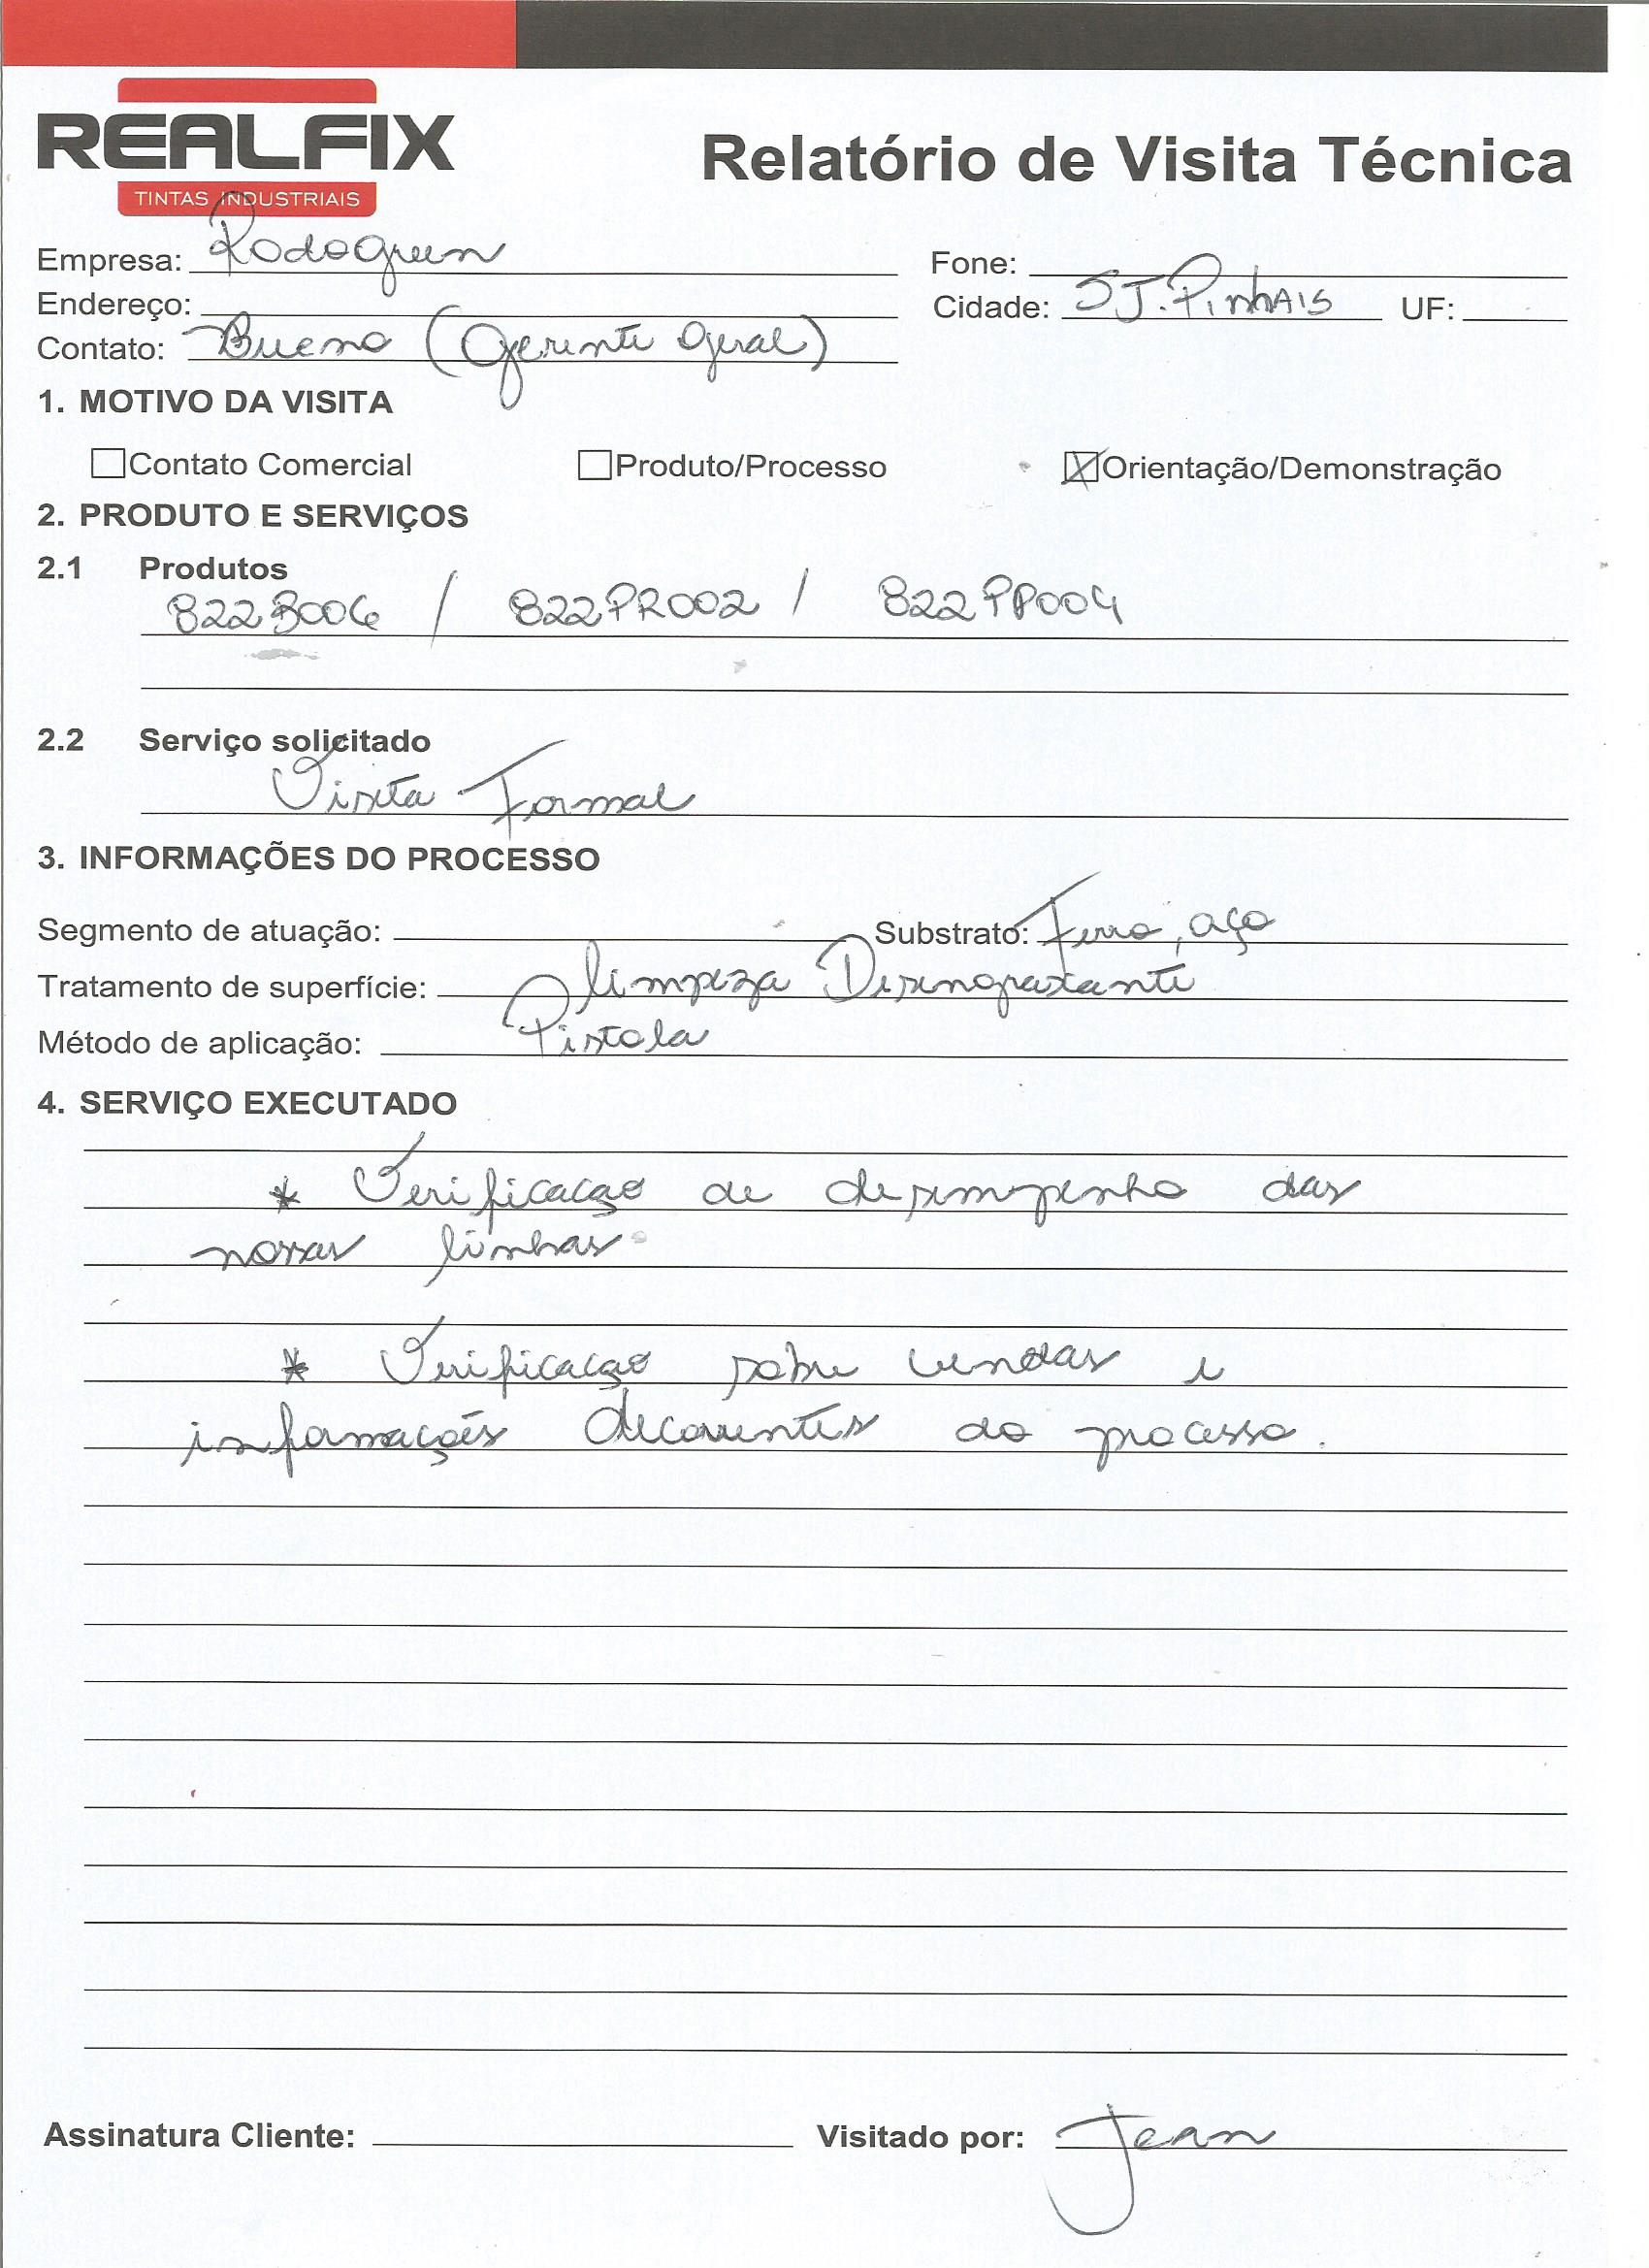 REALFIX
TINTAS INDUSTRIAIS
Relatório de Visita Técnica
Empresa: Rodogreen Fone:
Endereço: Cidade: SJ. PinhAIS UF:
Contato: Bueno (Gerente Geral)
1. MOTIVO DA VISITA
Contato Comercial Produto/Processo X Orientação/Demonstração
2. PRODUTO E SERVIÇOS
2.1 Produtos
822B006 / 822PR002 / 822PP004
2.2 Serviço solicitado
Visita Formal
3. INFORMAÇÕES DO PROCESSO
Segmento de atuação: Substrato: Ferro, aço
Tratamento de superfície: limpeza Desengraxante
Método de aplicação: Pistola
4. SERVIÇO EXECUTADO
* Verificaçao de desempenho das
nossas linhas.
* Verificaçao sobre vendas e
informações decorrentes do processo.
Assinatura Cliente: Visitado por: Jean